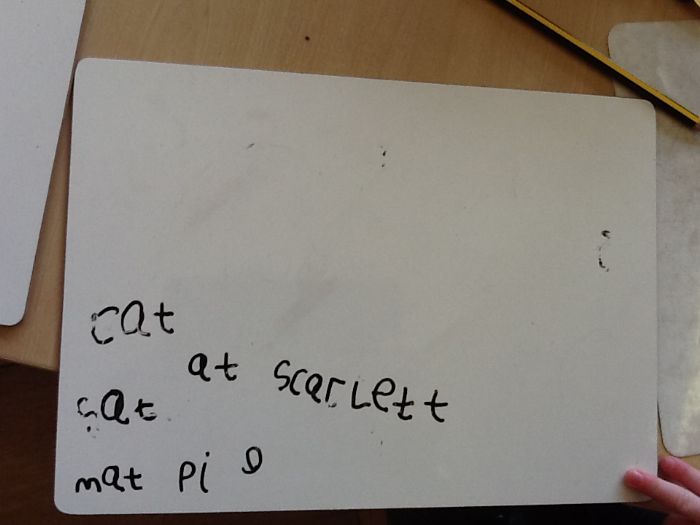 cat
at scarlett
sat
mat pi